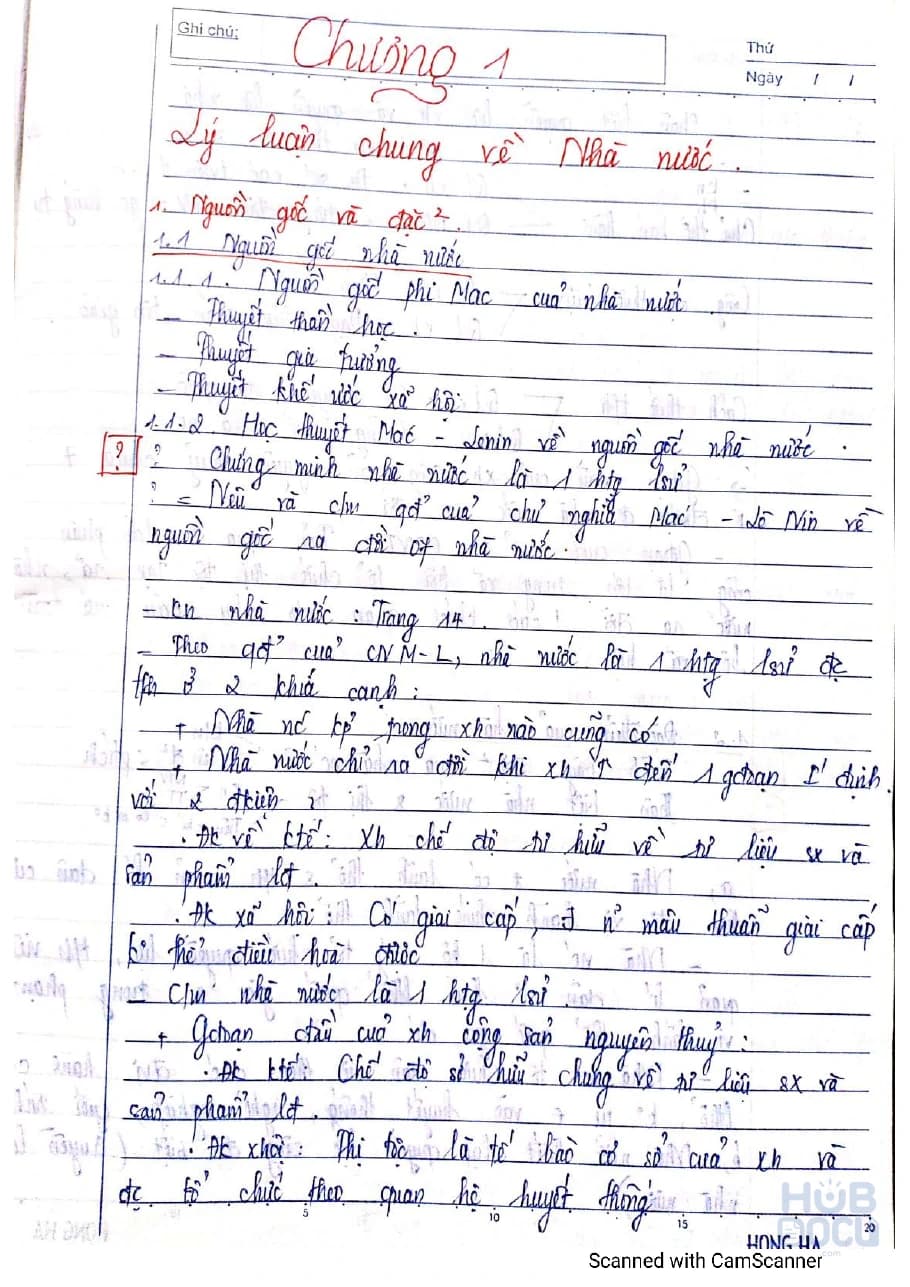 Ghi chú:
Chương 1
Thứ
Ngày / /
Lý luận chung về Nhà nước.
1. Nguồn gốc và đặc².
1.1 Nguồn gốc nhà nước
1.1.1. Nguồn gốc phi Mac của nhà nước.
- Thuyết thần học.
- Thuyết gia trưởng
- Thuyết khế ước xã hội
1.1.2 Học thuyết Mac - Lenin về nguồn gốc nhà nước.
? ? Chứng minh nhà nước là 1 htg lsử
? = Nêu và cm qđ' của chủ nghĩa Mác - Lê Nin về
nguồn gốc ra đời of nhà nước.
- kn nhà nước : Trang 14.
- Theo qđ' của CN M-L, nhà nước là 1 htg lsử đc
thh ở 2 khía cạnh :
+ Nhà nc kp' trong xh nào cũng có
+ Nhà nước chỉ ra đời khi xh ↑ đến 1 gđoạn I' định
với 2 đkiện :
. Đk về ktế : Xh chế độ tư hữu về tư liệu sx và
sản phẩm lđ.
. Đk xã hội : Có giai cấp, n~ mâu thuẫn giai cấp
thể điều hoà được
- Cm nhà nước là 1 htg lsử.
+ Gđoạn đầu của xh cộng sản nguyên thuỷ :
. Đk ktế : Chế độ sở hữu chung về tư liệu sx và
sản phẩm lđ.
. Đk xhội : Thị tộc là tế bào cơ sở của xh và
đc tổ chức theo quan hệ huyết thống.
5 10 15 20
HUB DOCU
.com
HONG HA
Scanned with CamScanner